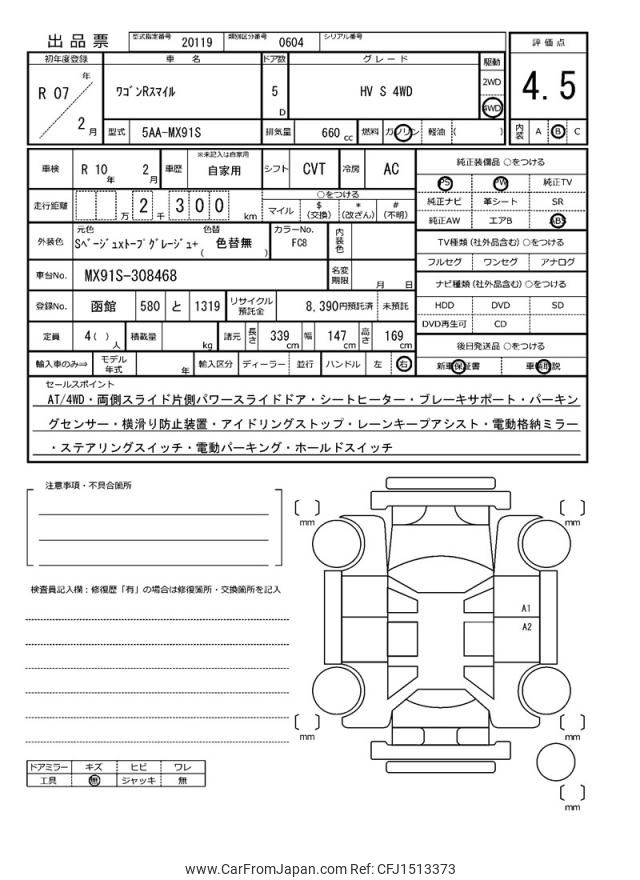 出品票 型式指定番号 20119 類別区分番号 0604 シリアル番号
初年度登録 車名 ドア数 グレード 駆動 評価点
R 07 年 2 月 ワゴンRスマイル 5 D HV S 4WD 2WD 4WD 4.5
型式 5AA-MX91S 排気量 660 cc 燃料 ガソリン 軽油 ( ) 内装 A B C
車検 R 10 年 2 月 車歴 ※未記入は自家用 自家用 シフト CVT 冷房 AC
純正装備品 ○をつける
PS PW 純正TV
純正ナビ 革シート SR
純正AW エアB ABS
走行距離 万 2 千 3 0 0 km ○をつける
マイル $ (交換) * (改ざん) # (不明)
外装色 元色 色替 Sベージュxトープグレージュ+( 色替無 ) カラーNo. FC8 内装色
TV種類 (社外品含む) ○をつける
フルセグ ワンセグ アナログ
車台No. MX91S-308468 名変期限 月 日
ナビ種類 (社外品含む) ○をつける
HDD DVD SD
DVD再生可 CD
登録No. 函館 580 と 1319 リサイクル預託金 8,390円預託済 未預託
定員 4 ( ) 人 積載量 kg 諸元 長さ 339 cm 幅 147 cm 高さ 169 cm
後日発送品 ○をつける
新車保証書 車輌取説
輸入車のみ⇒ モデル年式 年 輸入区分 ディーラー 並行 ハンドル 左 右
セールスポイント
AT/4WD・両側スライド片側パワースライドドア・シートヒーター・ブレーキサポート・パーキン
グセンサー・横滑り防止装置・アイドリングストップ・レーンキープアシスト・電動格納ミラー
・ステアリングスイッチ・電動パーキング・ホールドスイッチ
注意事項・不具合箇所
検査員記入欄：修復歴「有」の場合は修復箇所・交換箇所を記入
mm
mm
A1
A2
mm
mm
mm
ドアミラー キズ ヒビ ワレ
工具 無 ジャッキ 無
www.CarFromJapan.com Ref: CFJ1513373